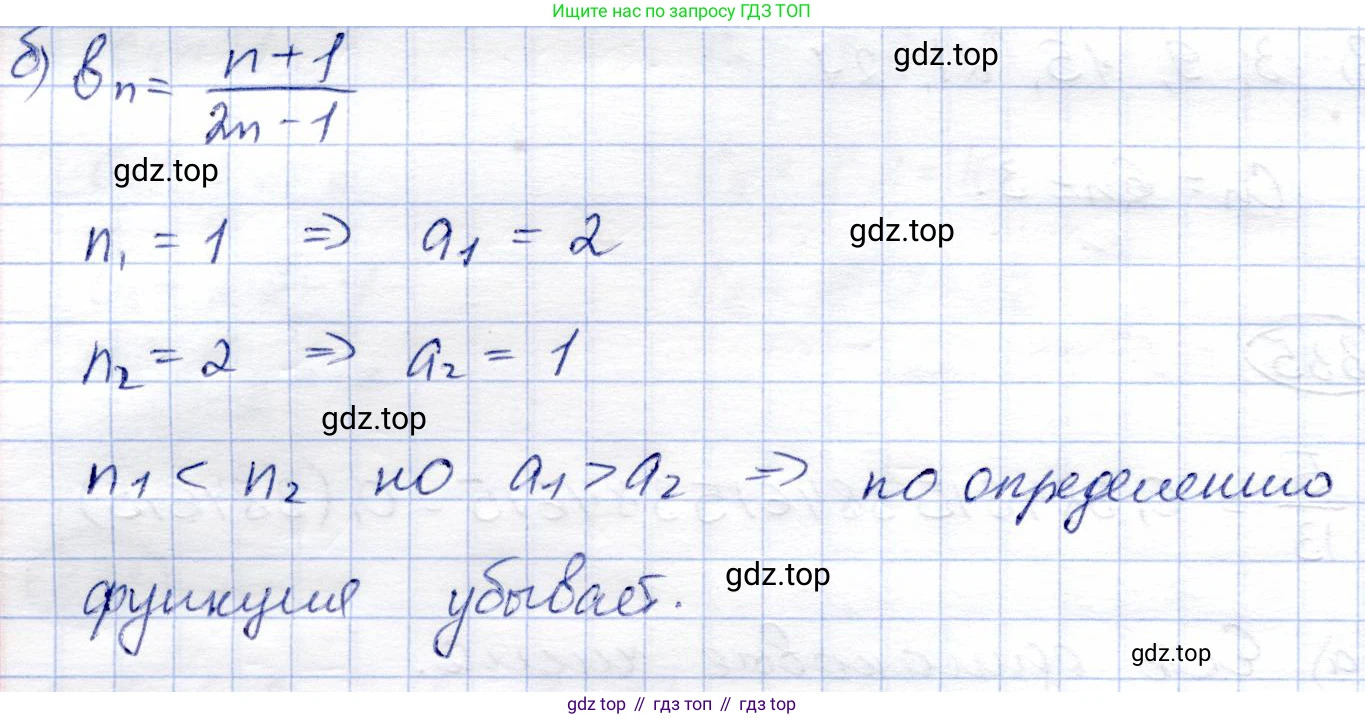 Ищите нас по запросу ГДЗ ТОП
б) bₙ = (n+1)/(2n-1)
gdz.top
gdz.top
n₁ = 1 ⇒ a₁ = 2
gdz.top
n₂ = 2 ⇒ a₂ = 1
gdz.top
n₁ < n₂ но a₁ > a₂ ⇒ по определению
функция убывает.
gdz.top
gdz.top
gdz top // гдз топ // gdz top